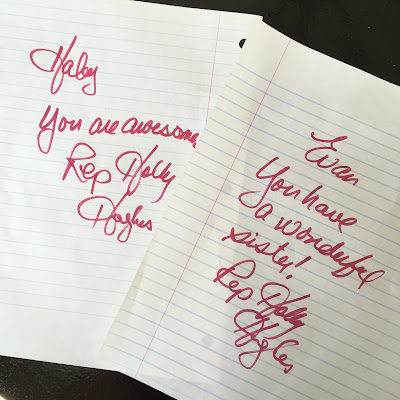 Haley
You are awesome
Rep Holly
Hughes
Evan
You have
a wonderful
sister!
Rep Holly
Hughes